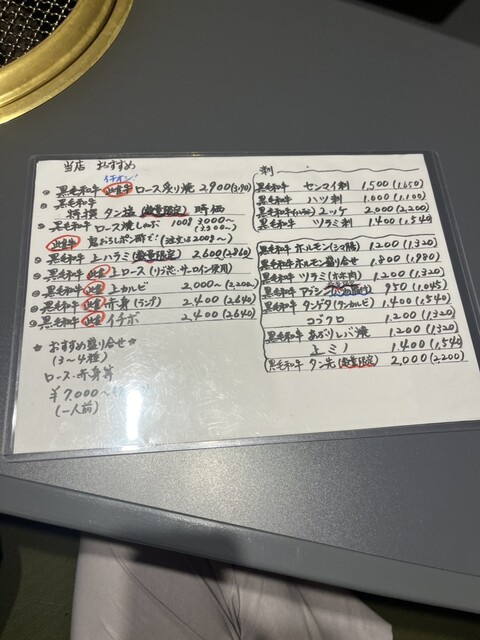 当店 おすすめ
イチオシ!
黒毛和牛 ロース炙り焼 2,900(3,190)
黒毛和牛
特撰 タン塩(数量限定) 時価
黒毛和牛 ロース焼しゃぶ 100g 3000~
(3300~)
鬼おろしポン酢で!(注文は200g~)
黒毛和牛 上ハラミ(数量限定) 2,600(2,860)
黒毛和牛 上ロース(リブ芯・サーロイン使用)
黒毛和牛 上カルビ 2,000~(2,200)
黒毛和牛 赤身(ランプ) 2,400(2,640)
黒毛和牛 イチボ 2,400(2,640)
★ おすすめ盛り合せ★
(3~4種)
ロース・赤身等
¥7,000~
(一人前)
刺
黒毛和牛 センマイ刺 1,500(1,650)
黒毛和牛 ハツ刺 1,000(1,100)
黒毛和牛 ユッケ 2,000(2,200)
黒毛和牛 ツラミ刺 1,400(1,540)
黒毛和牛 ホルモン(シマ腸) 1,200(1,320)
黒毛和牛 ホルモン盛り合せ 1,800(1,980)
黒毛和牛 ツラミ(ホホ肉) 1,200(1,320)
黒毛和牛 950(1,045)
黒毛和牛 タンゲタ(タンカルビ) 1,400(1,540)
コプクロ 1,200(1,320)
黒毛和牛 あぶりレバ焼 1,200(1,320)
上ミノ 1,400(1,540)
黒毛和牛 タン先(数量限定) 2,000(2,200)